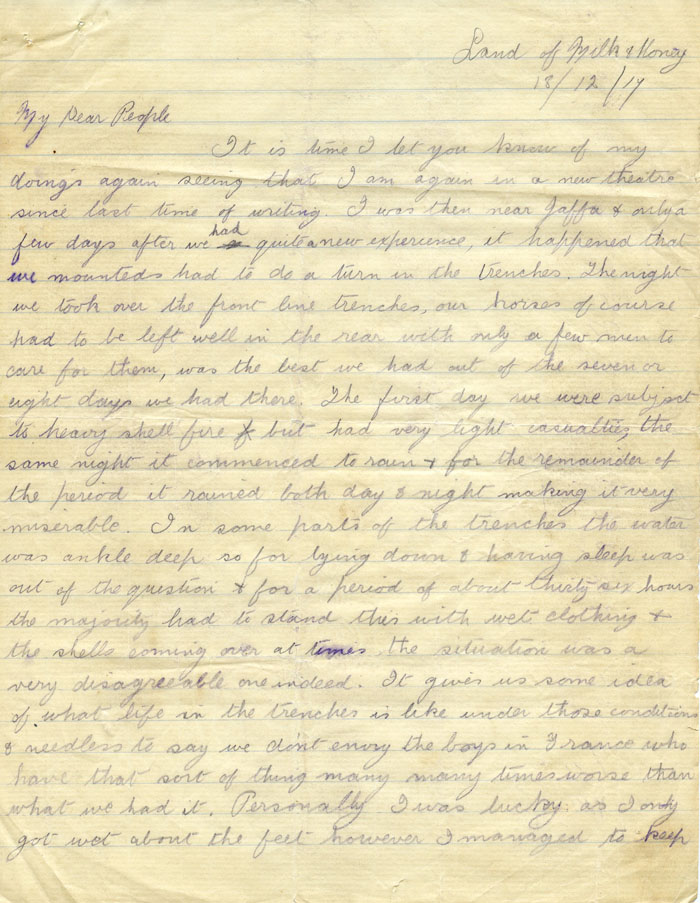 Land of Milk & Honey
18/12/17
My Dear People
It is time I let you know of my
doings again seeing that I am again in a new theatre
since last time of writing. I was then near Jaffa & only a
few days after we had quite a new experience, it happened that
we mounteds had to do a turn in the trenches. The night
we took over the front line trenches, our horses of course
had to be left well in the rear with only a few men to
care for them, was the best we had out of the seven or
eight days we had there. The first day we were subject
to heavy shell fire but had very light casualties, the
same night it commenced to rain & for the remainder of
the period it rained both day & night making it very
miserable. In some parts of the trenches the water
was ankle deep so for lying down & having sleep was
out of the question & for a period of about thirty six hours
the majority had to stand this with wet clothing &
the shells coming over at times, the situation was a
very disagreeable one indeed. It gives us some idea
of what life in the trenches is like under those conditions
& needless to say we dont envy the boys in France who
have that sort of thing many many times worse than
what we had it. Personally I was lucky as I only
got wet about the feet however I managed to keep